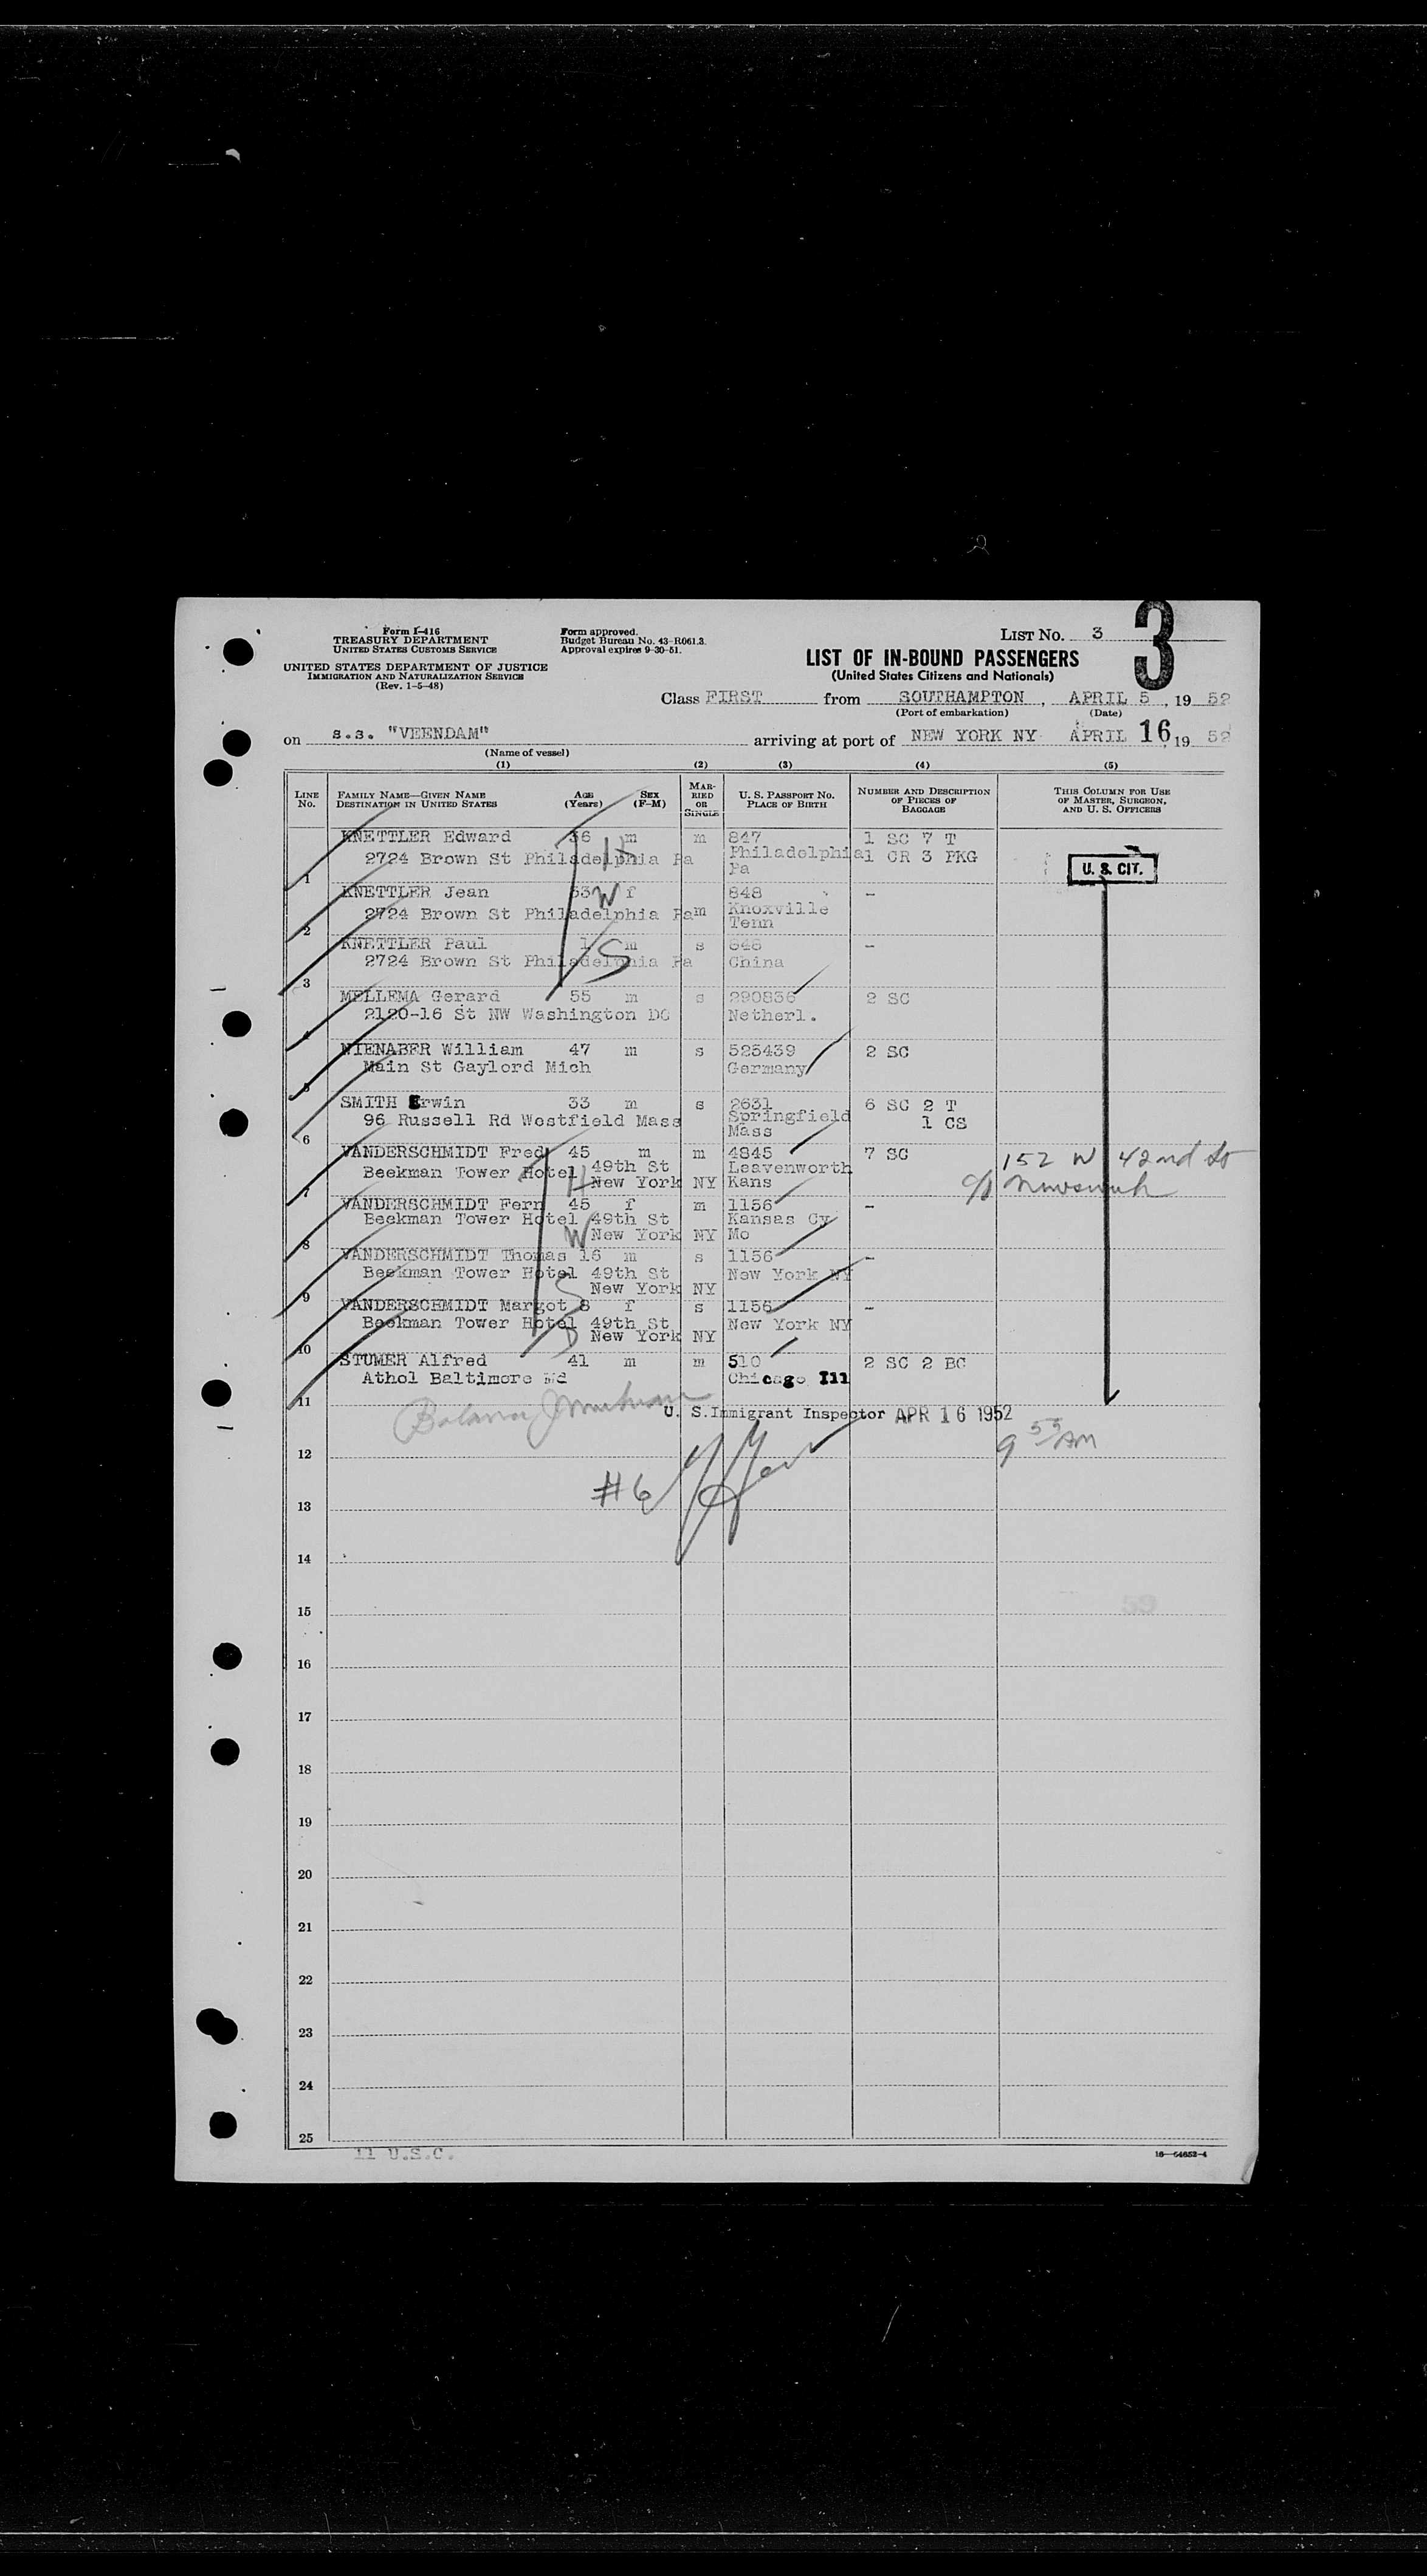 Form I-416
TREASURY DEPARTMENT
UNITED STATES CUSTOMS SERVICE
UNITED STATES DEPARTMENT OF JUSTICE
IMMIGRATION AND NATURALIZATION SERVICE
(Rev. 1-5-48)
Form approved.
Budget Bureau No. 43-R061.3.
Approval expires 9-30-51.
LIST NO. 3
3
LIST OF IN-BOUND PASSENGERS
(United States Citizens and Nationals)
Class FIRST from SOUTHAMPTON, APRIL 5, 19 52
(Port of embarkation) (Date)
on s.s. "VEENDAM" arriving at port of NEW YORK NY APRIL 16, 19 52
(Name of vessel)
(1) (2) (3) (4) (5)
LINE NO.
FAMILY NAME—GIVEN NAME
DESTINATION IN UNITED STATES
AGE (Years)
SEX (F-M)
MARRIED OR SINGLE
U. S. PASSPORT NO.
PLACE OF BIRTH
NUMBER AND DESCRIPTION OF PIECES OF BAGGAGE
THIS COLUMN FOR USE OF MASTER, SURGEON, AND U. S. OFFICERS
KNETTLER Edward 36 m m 847 1 SC 7 T
2724 Brown St Philadelphia Pa Philadelphia 1 CR 3 PKG
Pa
H
U. S. CIT.
1
KNETTLER Jean f 848 -
W
2724 Brown St Philadelphia Pa m Knoxville
Tenn
2
KNETTLER Paul 1 m s 848 -
S
2724 Brown St Philadelphia Pa China
3
MELLEMA Gerard 55 m s 290836 2 SC
2120-16 St NW Washington DC Netherl.
4
WIENABER William 47 m s 525439 2 SC
Main St Gaylord Mich Germany
5
SMITH Erwin 33 m s 2631 6 SC 2 T
96 Russell Rd Westfield Mass Springfield 1 CS
Mass
6
VANDERSCHMIDT Fred 45 m m 4845 7 SC 152 W 42nd St
Beekman Tower Hotel 49th St Leavenworth
New York NY Kans c/o Newsweek
H
7
VANDERSCHMIDT Fern 45 f m 1156 -
Beekman Tower Hotel 49th St Kansas Cy
W New York NY Mo
8
VANDERSCHMIDT Thomas 16 m s 1156 -
Beekman Tower Hotel 49th St New York NY
S New York NY
9
VANDERSCHMIDT Margot 8 f s 1156 -
Beekman Tower Hotel 49th St New York NY
D New York NY
10
STUMER Alfred 41 m m 510 2 SC 2 BG
Athol Baltimore Md Chicago Ill
11
U. S. Immigrant Inspector APR 16 1952
9 55 AM
12
#6
13
14
15
16
17
18
19
20
21
22
23
24
25
11 U.S.C.
16—54652-4